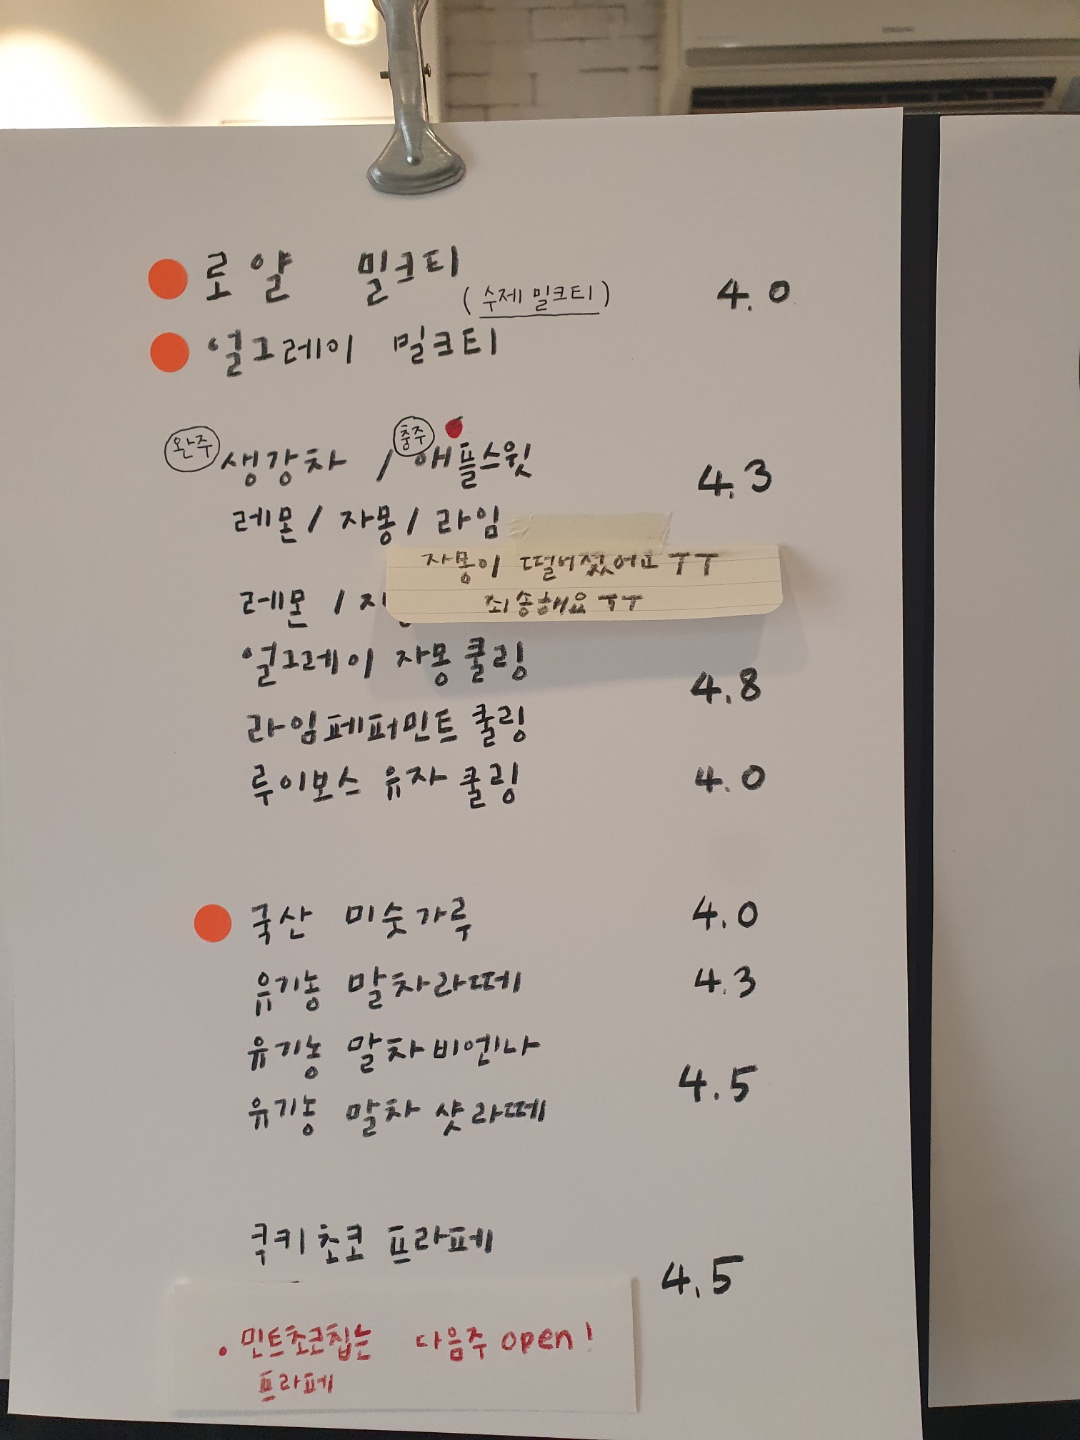 로얄 밀크티
(수제 밀크티)
4.0
얼그레이 밀크티
완주 생강차 / 충주 애플스윗
4.3
레몬 / 자몽 / 라임
자몽이 떨어졌어요 ㅜㅜ
죄송해요 ㅜㅜ
레몬 /
얼그레이 자몽 쿨링
4.8
라임페퍼민트 쿨링
루이보스 유자 쿨링 4.0
국산 미숫가루 4.0
유기농 말차라떼 4.3
유기농 말차비엔나
4.5
유기농 말차 샷라떼
쿡키초코 프라페
4.5
• 민트초코칩는 다음주 open!
프라페